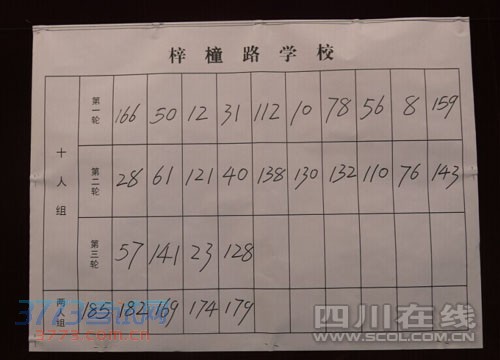 梓橦路学校
十人组
第一轮 166 50 12 31 112 10 78 56 8 159
第二轮 28 61 121 40 138 130 132 110 76 143
第三轮 57 141 23 128
两人组 185 182 169 174 179
3773
四川在线
WWW.SCOL.COM.CN